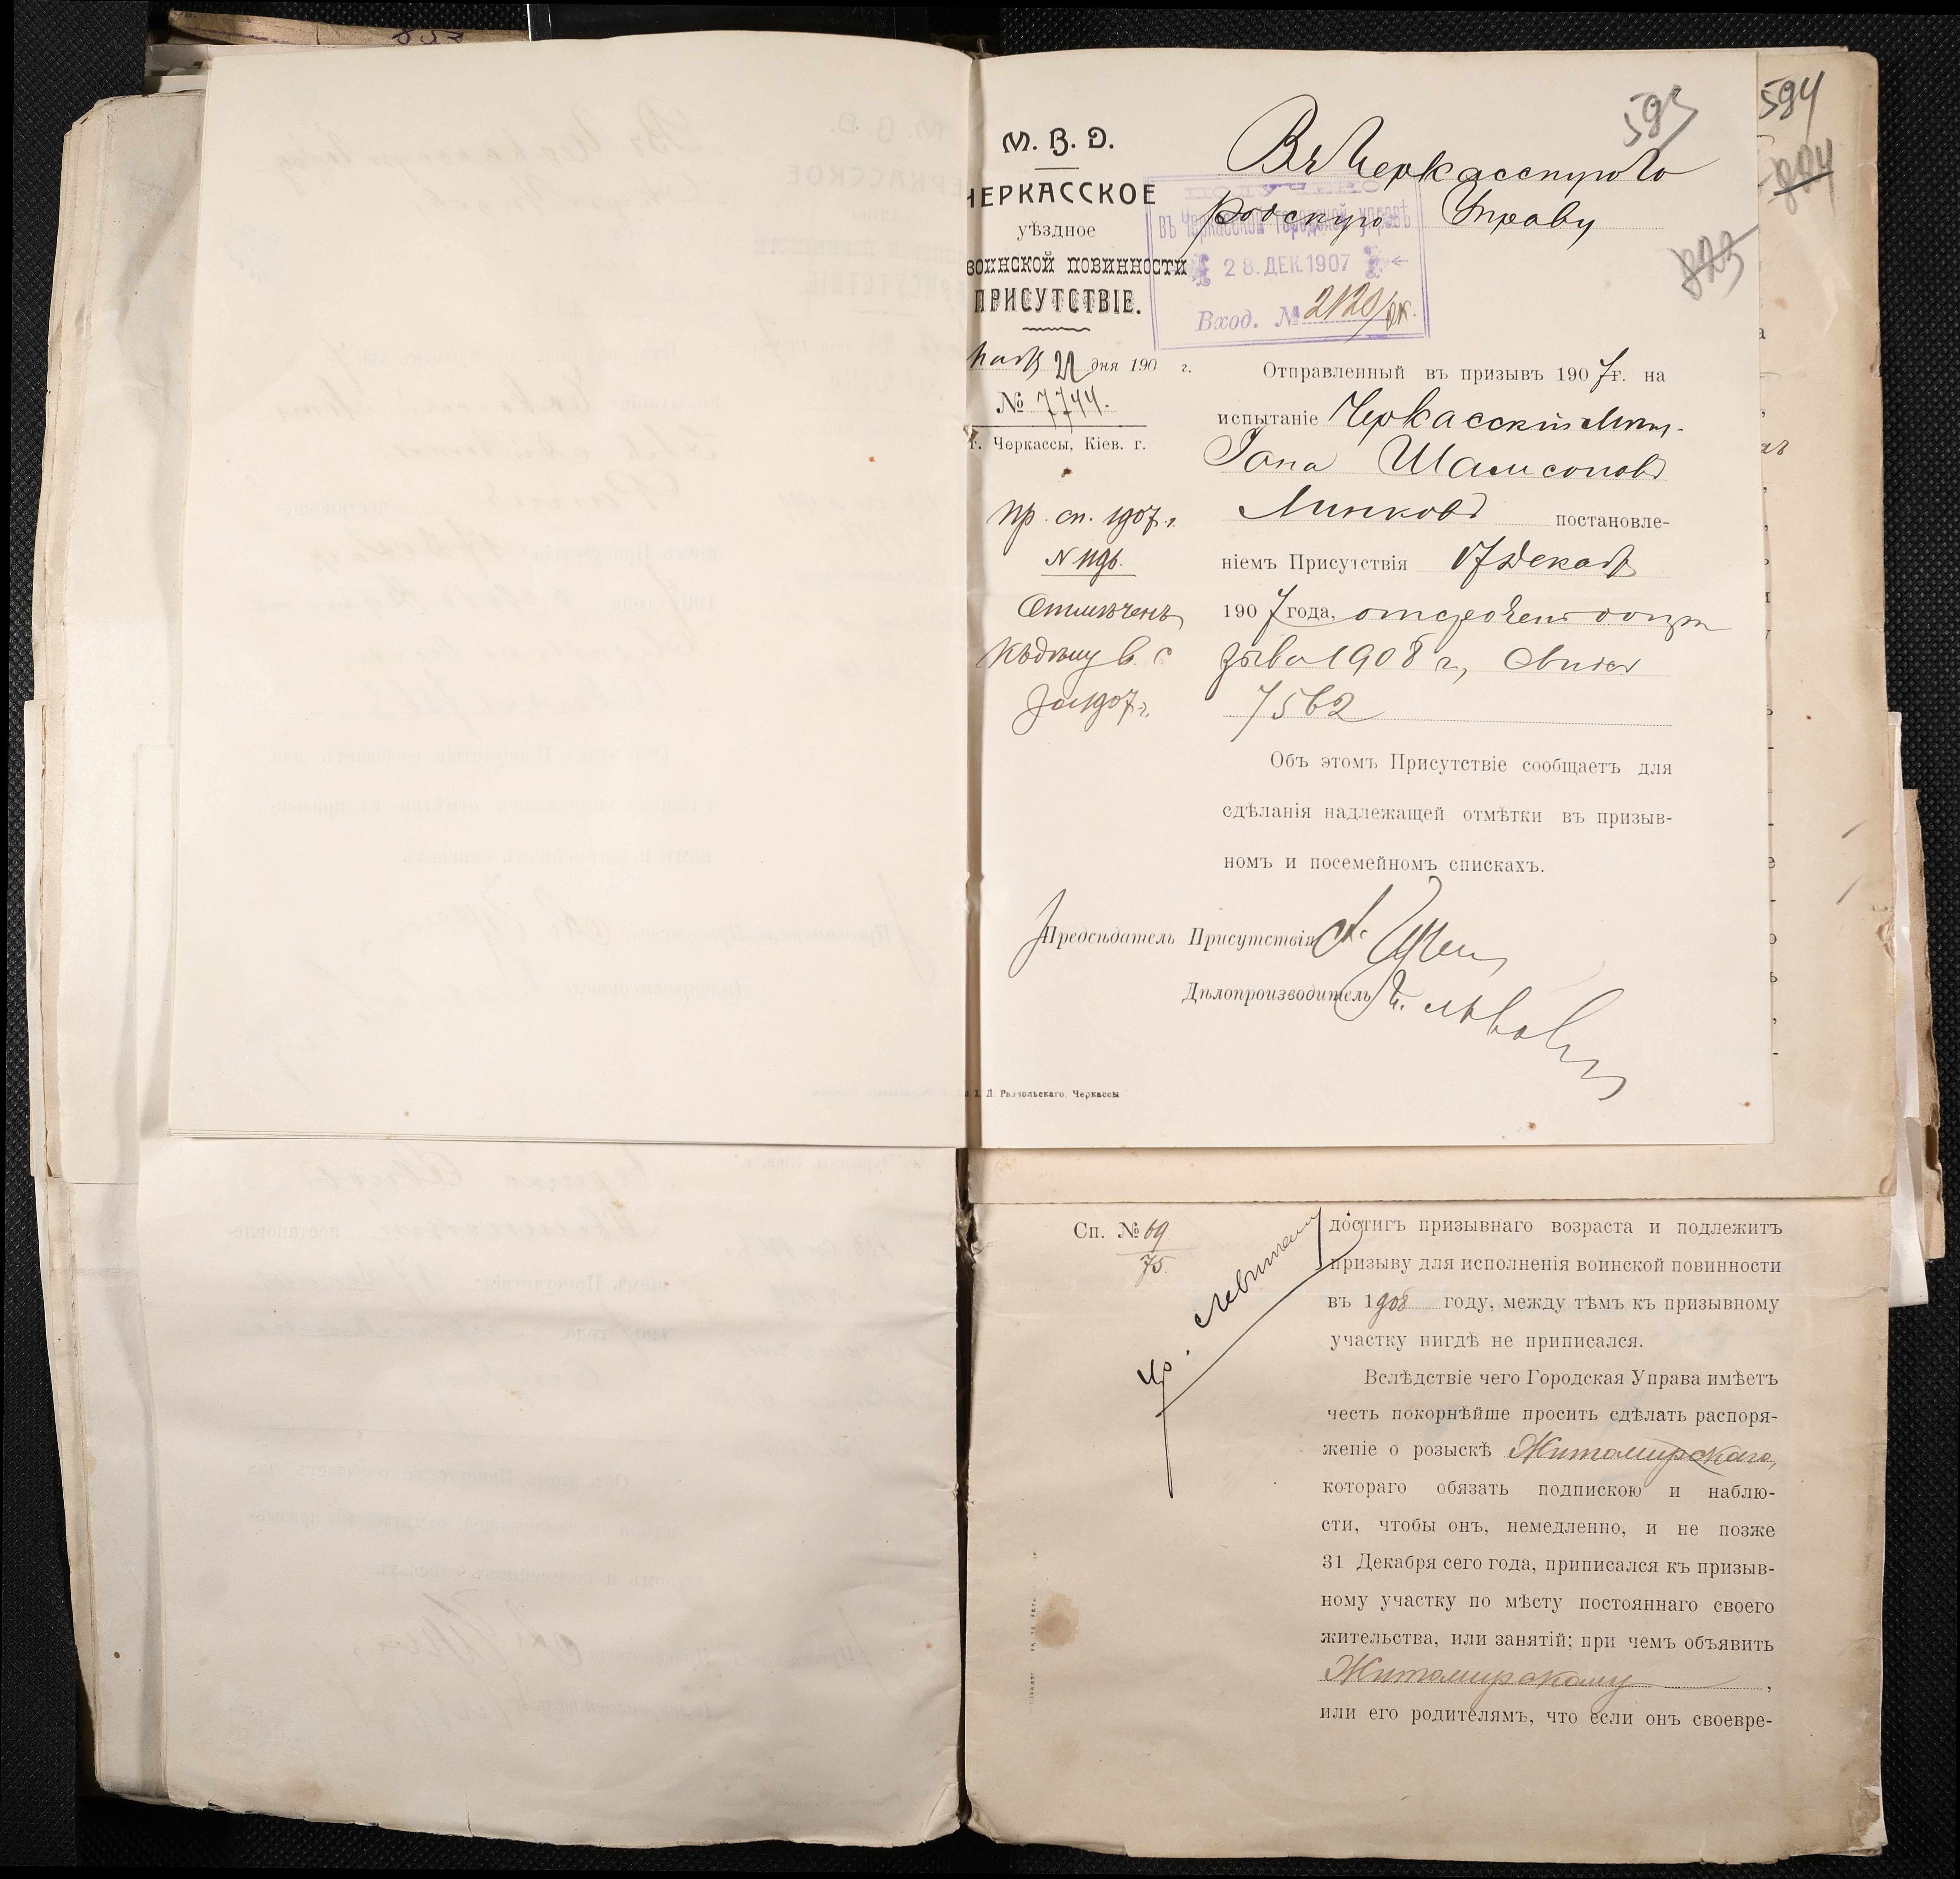 593
594
894
893
М. В. Д.
ЧЕРКАССКОЕ
уѣздное
воинской повинности
ПРИСУТСТВІЕ.
22 дня 190 г.
№ 7744.
г. Черкассы, Кіев. г.
Пр. сп. 1907 г.
N 1196.
Отмѣченъ
за 1907 г.
Въ Черкасскую Го
родскую Управу
ПОЛУЧЕНО
Въ Черкасской Городской управѣ
28. ДЕК. 1907
Вход. № 2120/вк.
Отправленный въ призывъ 1907 г. на
испытаніе Черкасскій Мѣщ.
Іона Шамсоновъ
Линковъ постановле-
ніемъ Присутствія 17 Декаб
1907 года, отсроченъ до приз
зыва 1908 г,
7562
Объ этомъ Присутствіе сообщаетъ для
сдѣланія надлежащей отмѣтки въ призыв-
номъ и посемейномъ спискахъ.
Предсѣдатель Присутствія
Дѣлопроизводитель
Черкассы
Сп. № 69
75
достигъ призывнаго возраста и подлежитъ
призыву для исполненія воинской повинности
въ 1908 году, между тѣмъ къ призывному
участку нигдѣ не приписался.
Вслѣдствіе чего Городская Управа имѣетъ
честь покорнѣйше просить сдѣлать распоря-
женіе о розыскѣ Житомирскаго,
котораго обязать подпискою и наблю-
сти, чтобы онъ, немедленно, и не позже
31 Декабря сего года, приписался къ призыв-
ному участку по мѣсту постояннаго своего
жительства, или занятій; при чемъ объявить
Житомирскому ,
или его родителямъ, что если онъ своевре-